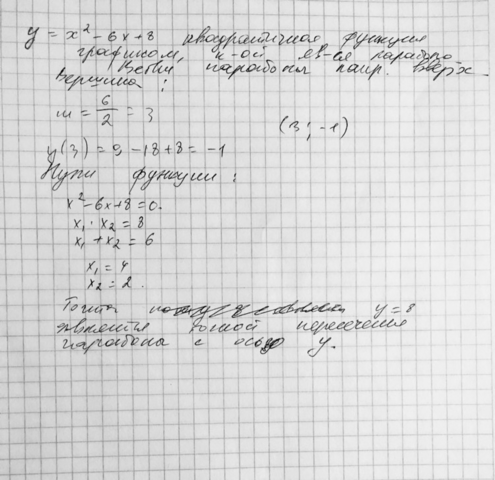 y = x² - 6x + 8 квадратичная функция
графиком, к-ой яв-ся парабола.
Ветви параболы напр. вверх.
Вершина:
m = 6/2 = 3
(3; -1)
y(3) = 9 - 18 + 8 = -1
Нули функции:
x² - 6x + 8 = 0.
x₁ · x₂ = 8
x₁ + x₂ = 6
x₁ = 4
x₂ = 2.
Точка y = 8
является точкой пересечения
параболы с осью y.